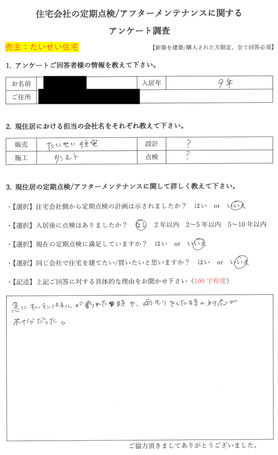 住宅会社の定期点検/アフターメンテナンスに関する
アンケート調査
売主：たいせい住宅
【新築を建築/購入された方限定、全て回答必須】
1. アンケートご回答者様の情報を教えて下さい。
お名前 入居年 9年
ご住所
2. 現住居における担当の会社名をそれぞれ教えて下さい。
販売 たいせい住宅 設計 ?
施工 点検 ?
3. 現住居の定期点検/アフターメンテナンスに関して詳しく教えて下さい。
・【選択】住宅会社側から定期点検の計画は示されましたか？ はい or いいえ
・【選択】入居後に点検はありましたか？ なし 2年以内 2～5年以内 5～10年以内
・【選択】現在の定期点検に満足していますか？ はい or いいえ
・【選択】同じ会社で住宅を建てたい/買いたいと思いますか？ はい or いいえ
・【記述】上記ご回答に対する具体的な理由をお聞かせ下さい（100字程度）
急に が 時や、雨もりをした時の対応が
不十分だった。
ご協力頂きましてありがとうございました。